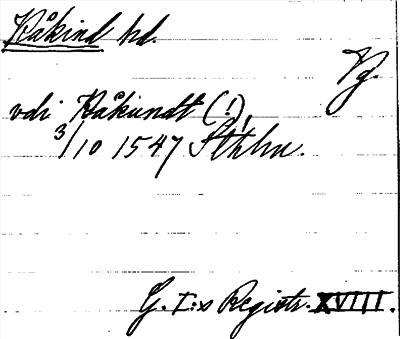 Kåkind hd.
Vg.
vdi Kåkundt (!),
3/10 1547 Sthlm.
G. I:s Registr. XVIII.